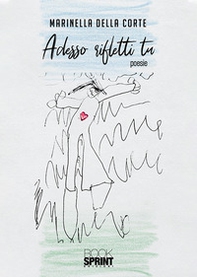 MARINELLA DELLA CORTE
Adesso rifletti tu
poesie
BOOK
SPRINT